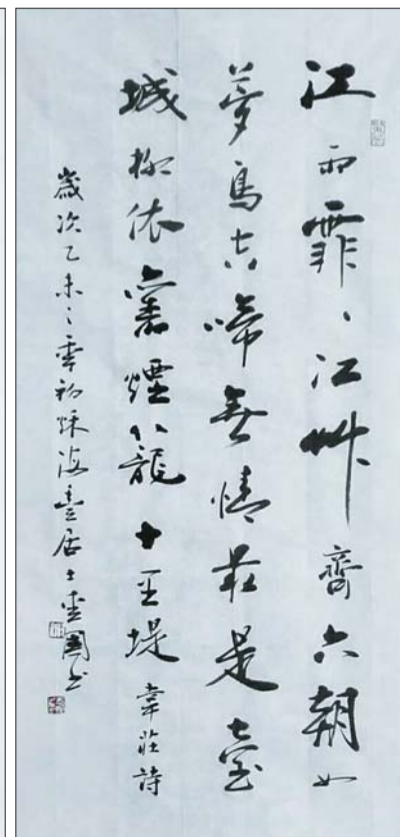 江雨霏〻江艸齊六朝如
夢鳥空啼無情最是臺
城柳依舊煙籠十里堤 韋莊詩
歲次乙未之季初秌海居士書